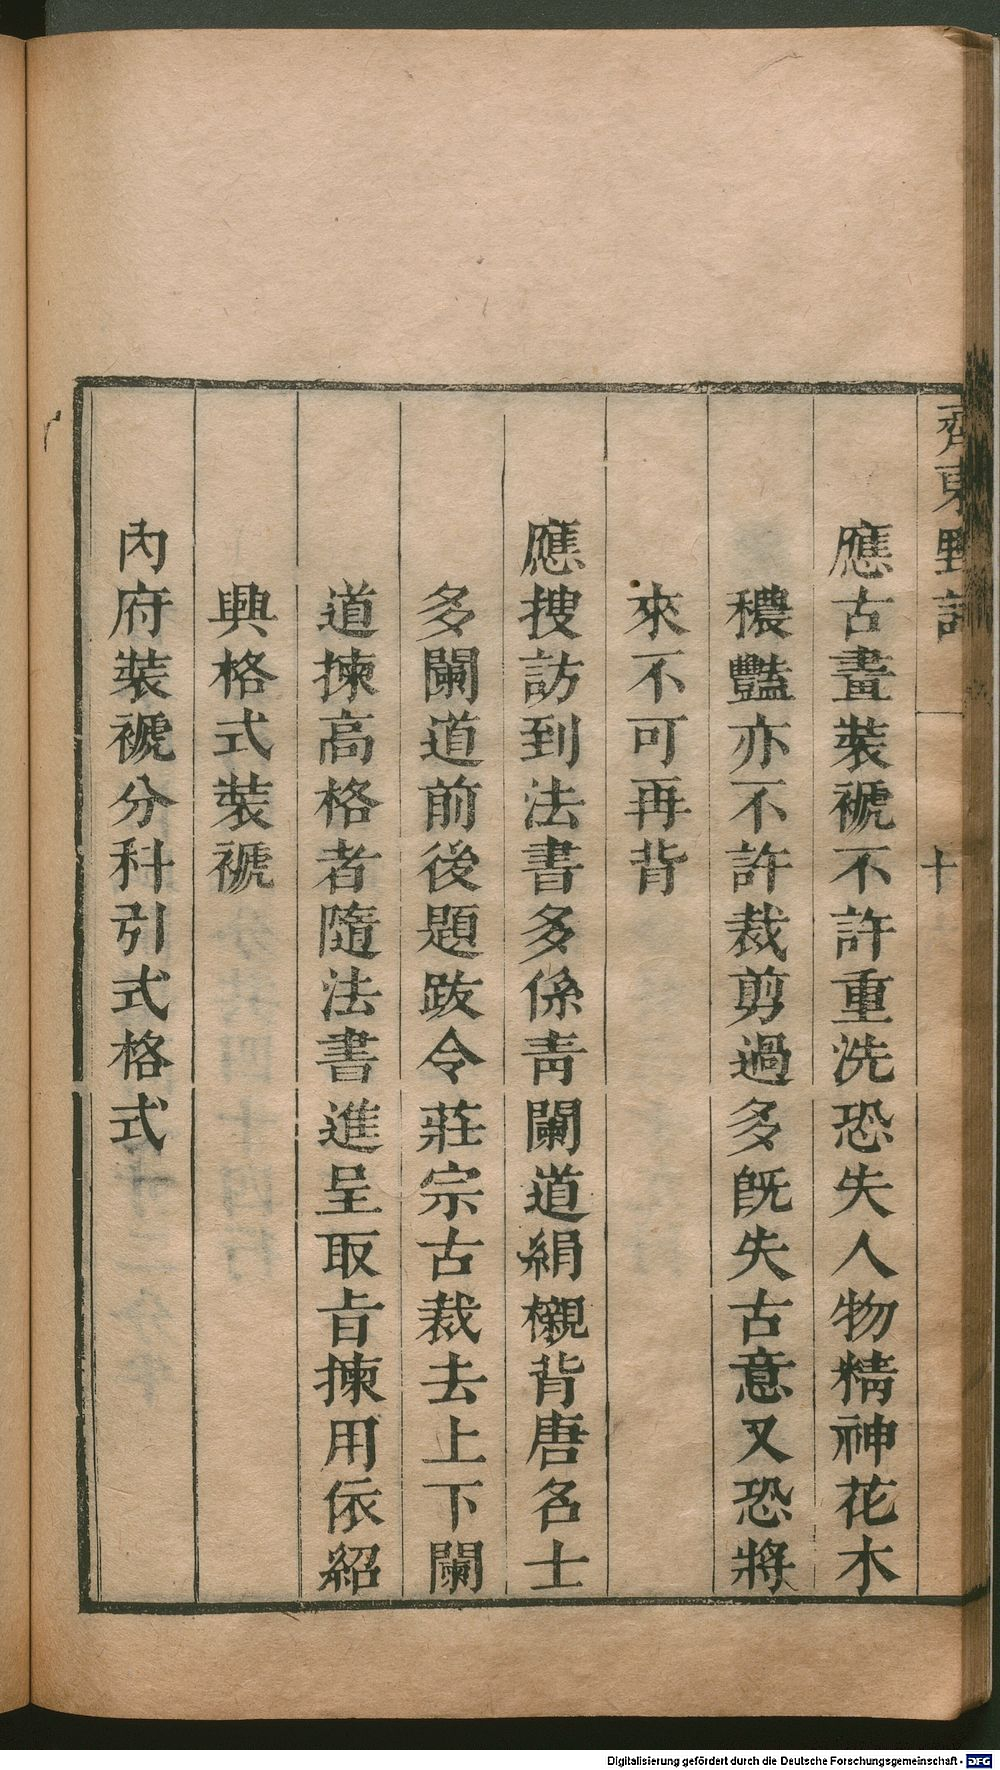 齊東野語
十
應古畫裝褫不許重洗恐失人物精神花木
穠豔亦不許裁剪過多旣失古意又恐將
來不可再背
應搜訪到法書多係靑闌道絹襯背唐名士
多闌道前後題跋令莊宗古裁去上下闌
道揀高格者隨法書進呈取旨揀用依紹
興格式裝褫
內府裝褫分科引式格式
Digitalisierung gefördert durch die Deutsche Forschungsgemeinschaft - DFG